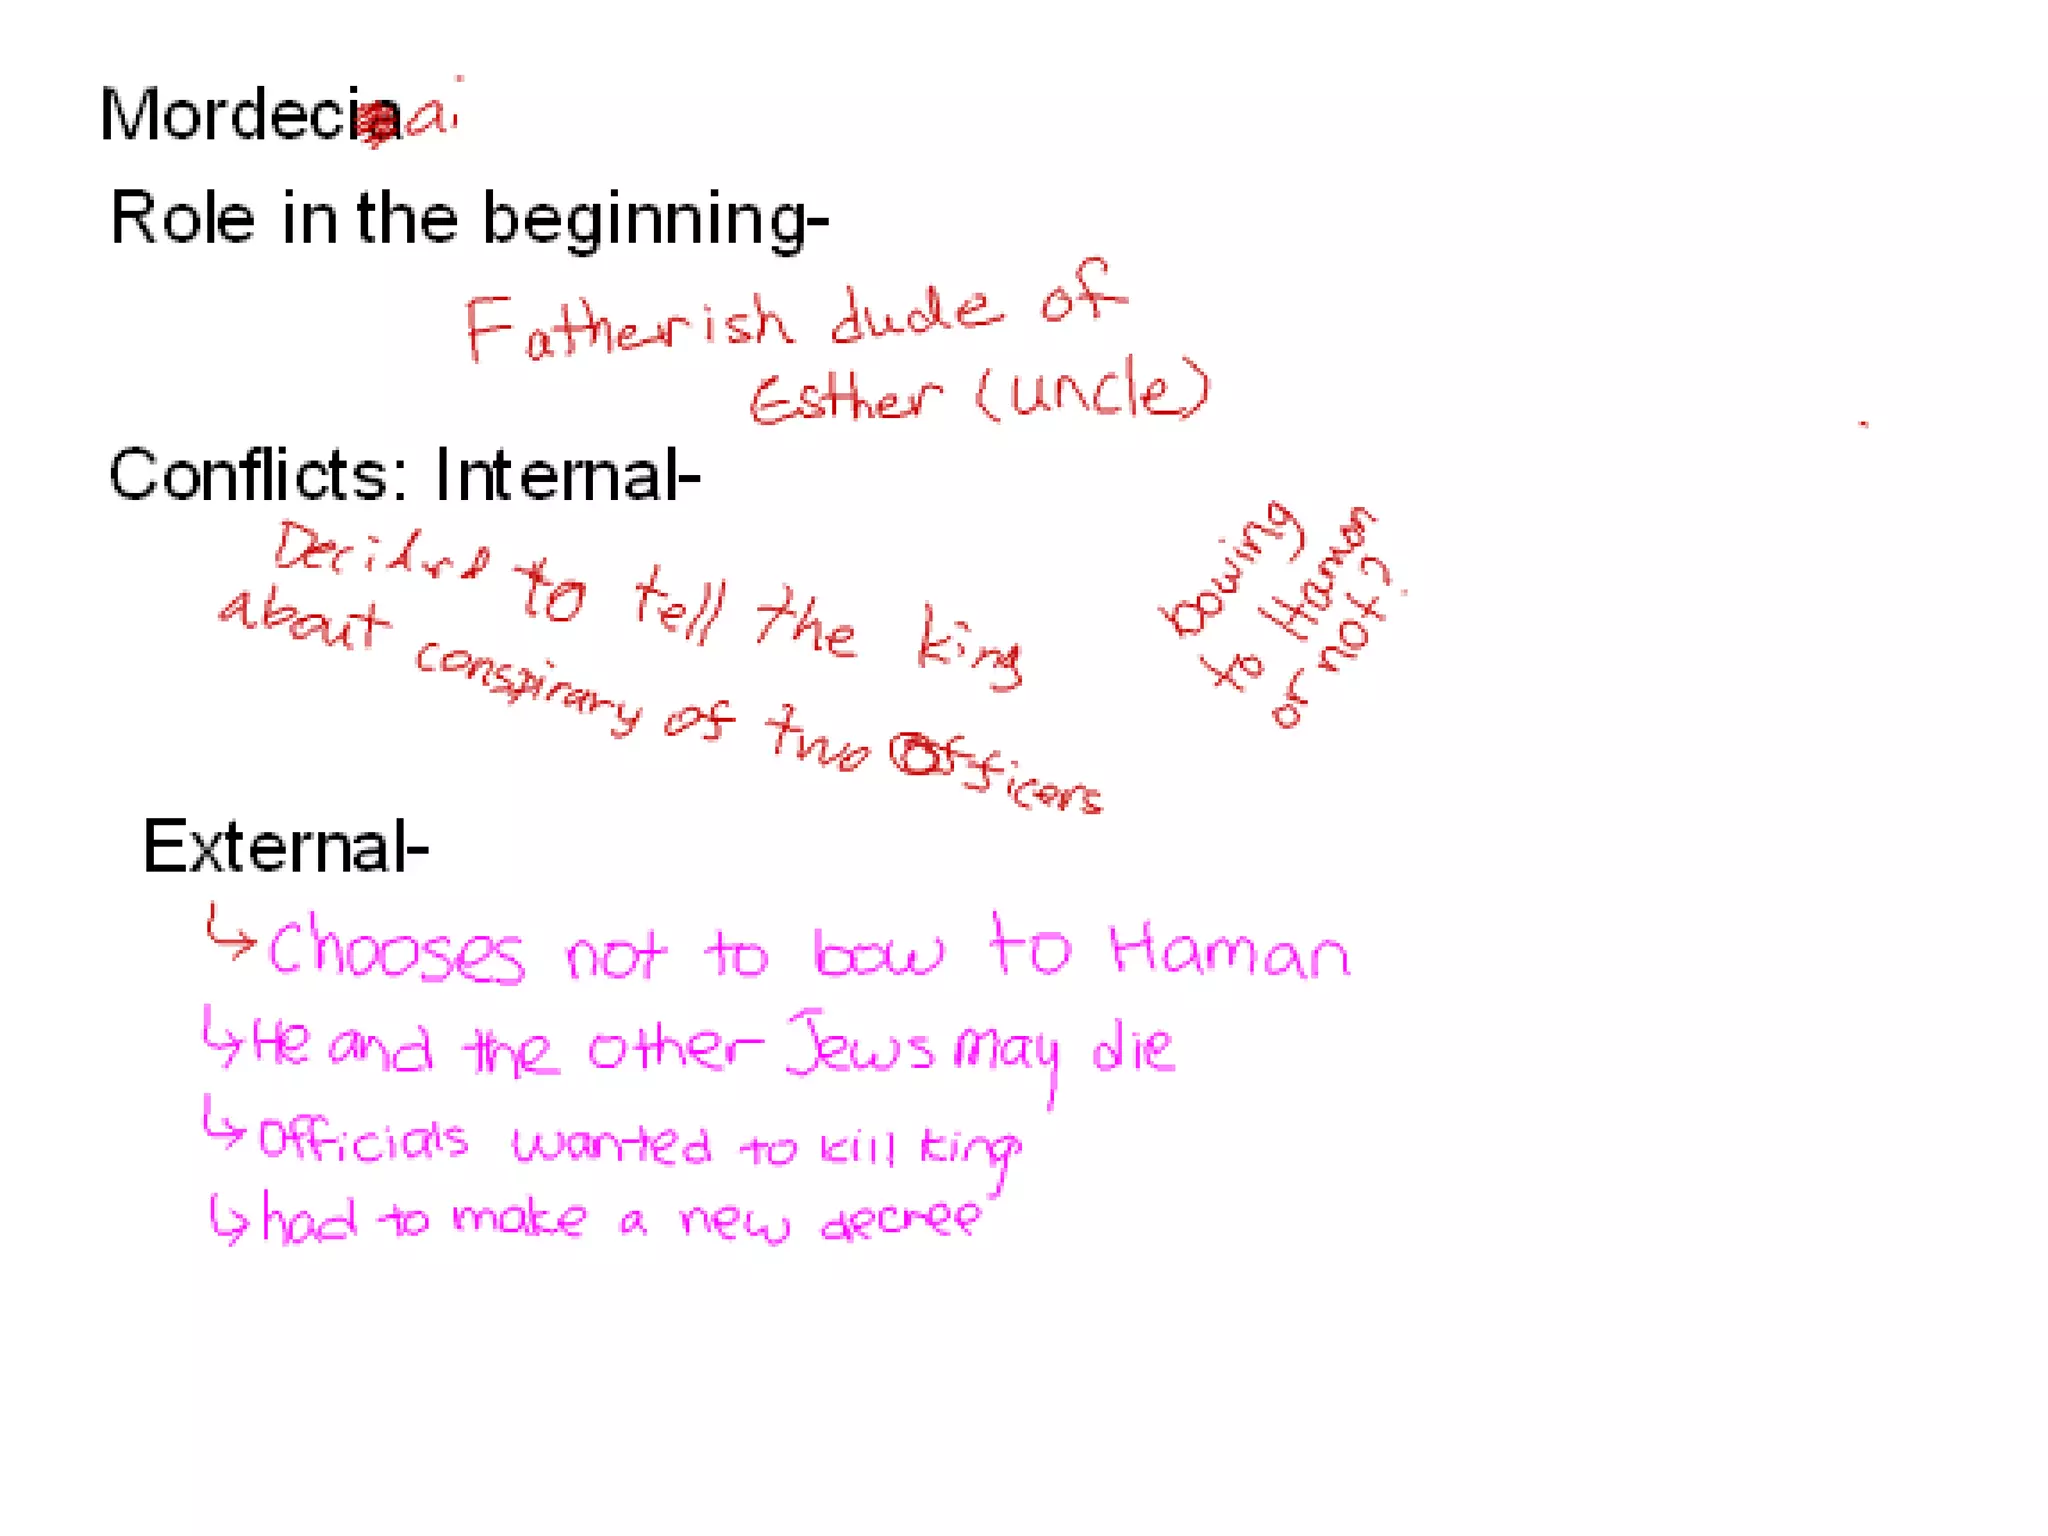 Mordeciaai
Role in the beginning-
Fatherish dude of
Esther (uncle)
Conflicts: Internal-
Decided to tell the king
about conspirary of two officers
bowing
to Haman
or not?
External-
↳ Chooses not to bow to Haman
↳ He and the other Jews may die
↳ Officials wanted to kill king
↳ had to make a new decree